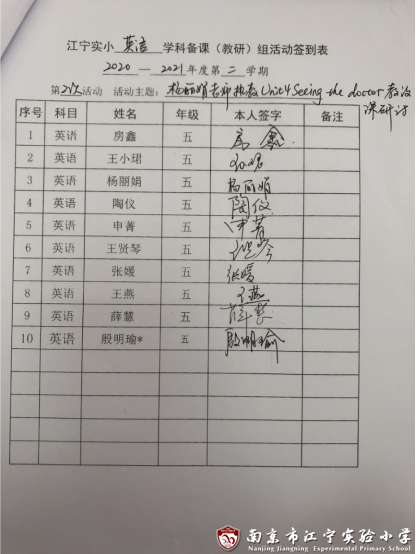 江宁实小 英语 学科备课（教研）组活动签到表
2020 — 2021年度第二学期
第2次活动 活动主题：杨丽娟老师执教Unit4 Seeing the doctor教法
课研讨
序号 科目 姓名 年级 本人签字 备注
1 英语 房鑫 五 房鑫
2 英语 王小珺 五
3 英语 杨丽娟 五 杨丽娟
4 英语 陶仪 五 陶仪
5 英语 申菁 五 申菁
6 英语 王贤琴 五
7 英语 张媛 五 张媛
8 英语 王燕 五 王燕
9 英语 薛慧 五 薛慧
10 英语 殷明瑜* 五 殷明瑜
南京市江宁实验小学
Nanjing Jiangning Experimental Primary School